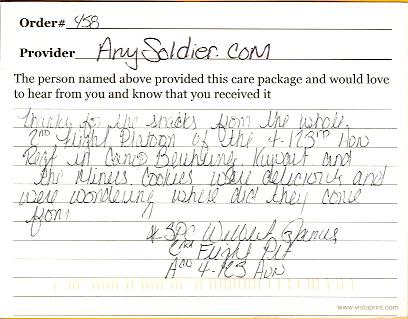 Order# 458
Provider AnySoldier.com
The person named above provided this care package and would love
to hear from you and know that you received it
Thanks for the snacks from the whole
2nd Flight Platoon of the 4-123rd Avn
Regt in Camp Buehring, Kuwait and
the Cookies were delicious and
were wondering where did they come
from
SPC
2nd Flight Plt
4-123 Avn
www.vistaprint.com